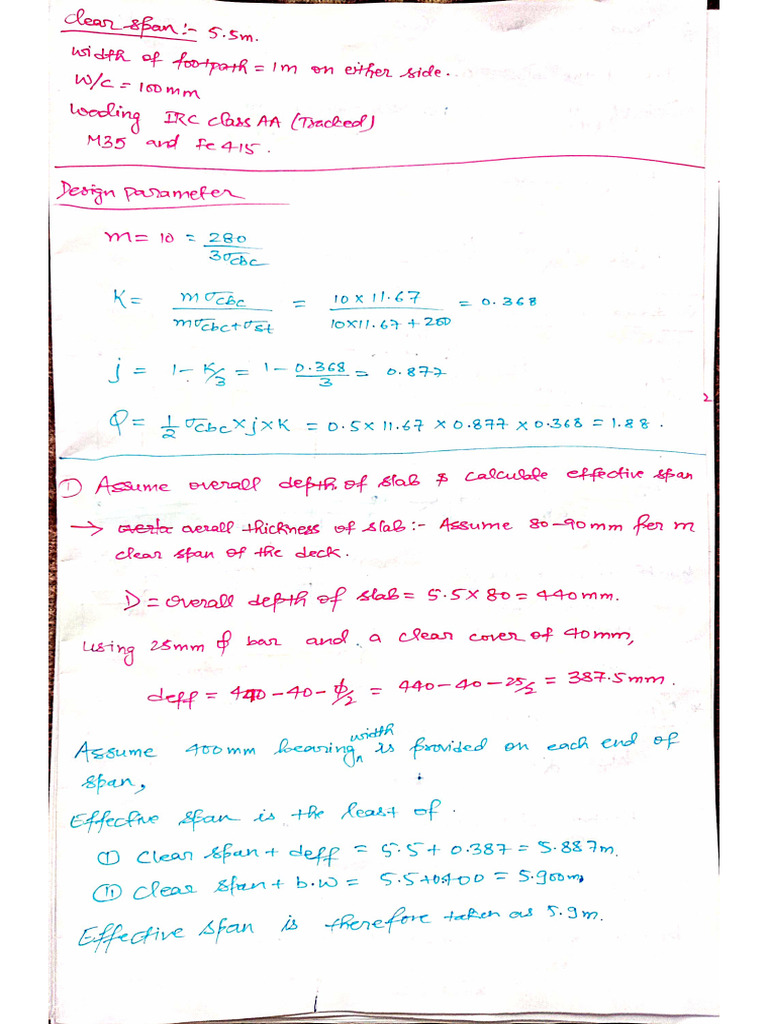 clear span:- 5.5m.
width of footpath = 1m on either side.
W/C = 100mm
Loading IRC class AA (Tracked)
M35 and Fe 415.
Design parameter
m = 10 = 280 / 3σcbc
K = mσcbc / mσcbc+σst = 10 x 11.67 / 10x11.67 + 200 = 0.368
j = 1 - K/3 = 1 - 0.368/3 = 0.877
2
Q = 1/2 σcbc x j x K = 0.5 x 11.67 x 0.877 x 0.368 = 1.88.
① Assume overall depth of slab & calculate effective span
→ overall thickness of slab:- Assume 80-90mm per m
clear span of the deck.
D = overall depth of slab = 5.5 x 80 = 440mm.
using 25mm ϕ bar and a clear cover of 40mm,
deff = 440 - 40 - ϕ/2 = 440 - 40 - 25/2 = 387.5mm.
Assume 400mm bearing width is provided on each end of
span,
Effective span is the least of.
① clear span + deff = 5.5 + 0.387 = 5.887m.
② clear span + b.w = 5.5+0.400 = 5.900m,
Effective span is therefore taken as 5.9m.